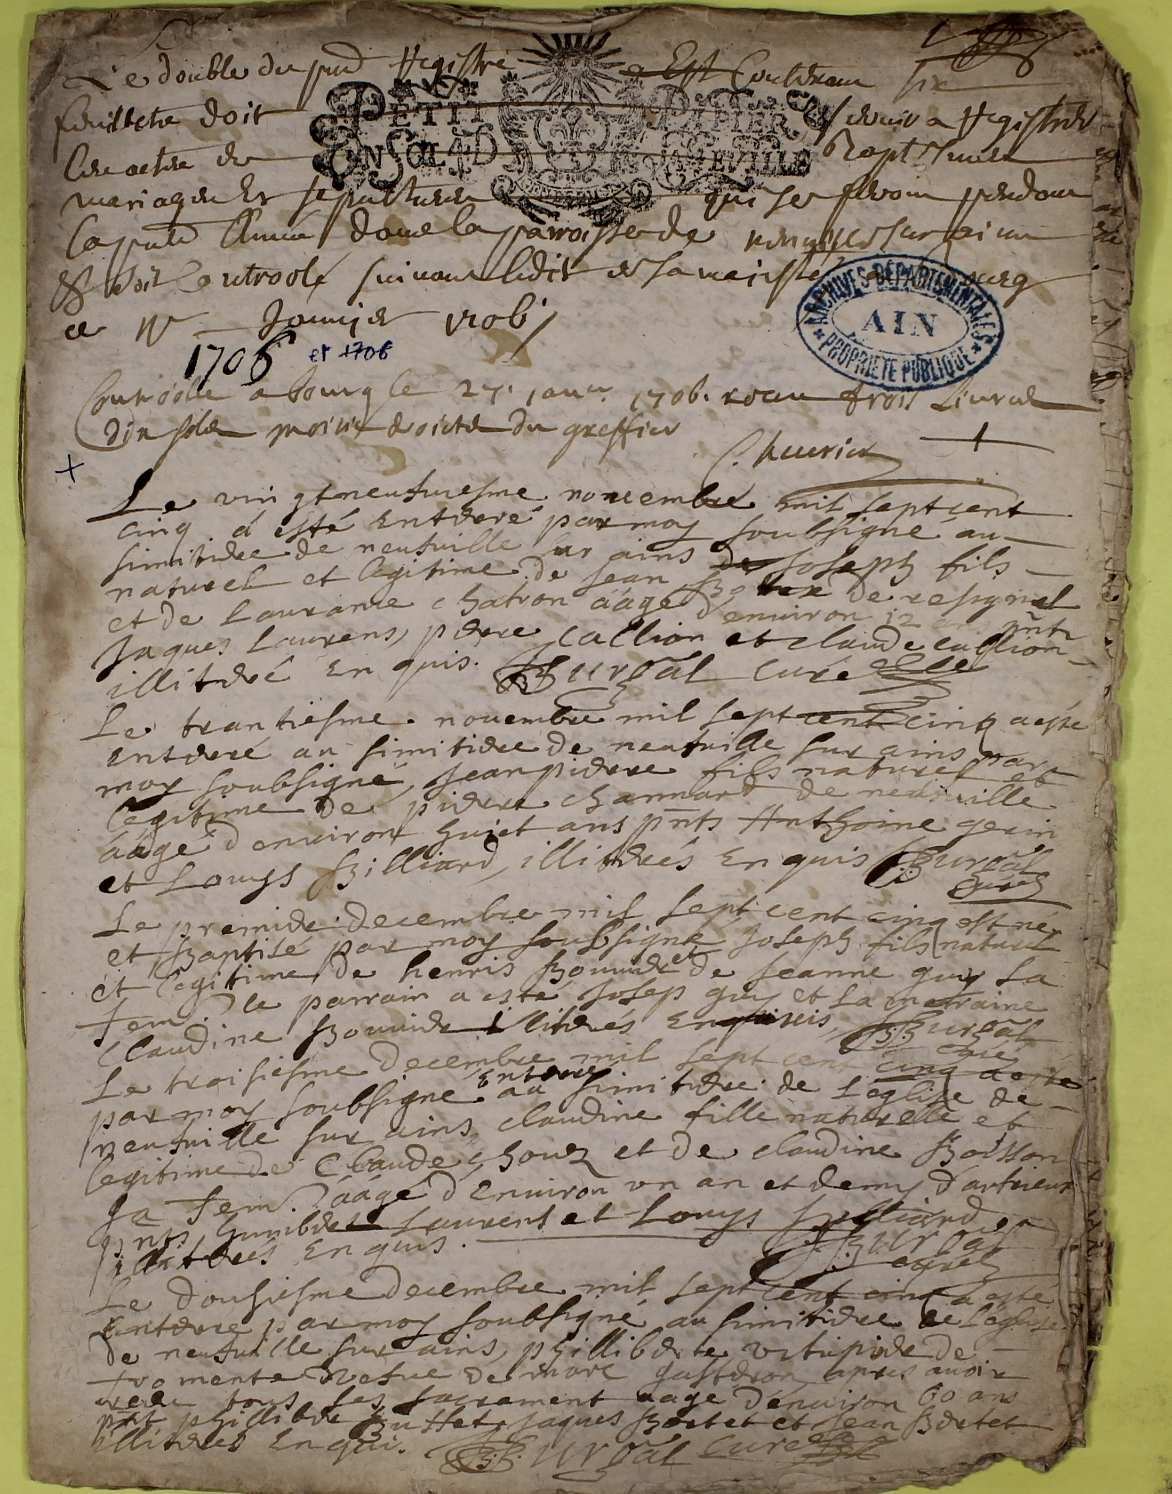 Le double du pnt Registre Est Contenan six
feuillets doit servir a Registrer
PETIT PAPIER
UN SOL 4 D LA FEUILLE
les actes de Baptesmes
mariages Et sepultures qui se feront pendant
la pnte Année dans la parroisse de sur ain
Et doit Controolé suivant ledit de sa majesté a bourg
ce Janvier 1706
1706 et 1706
ARCHIVES DEPARTEMENTALES
AIN
PROPRIETE PUBLIQUE
Controolle a bourg le 27. janvr 1706. receu trois livres
dix sols moitié droicts du greffier
Le vingt neufviesme novembre mil sept cent
cinq a esté Enterré par moy soubsigné au
simitiere de neufville sur ains de Joseph fils
naturel et legitime de Jean de
et de Laurance chatron áagé d'environ 12 ans pnts
Jaques Laurens, pierre Callion et claude callion
illiteré Enquis. Burgat curé
Le trantiesme novembre mil sept cent cinq a esté
Enterré au simitiere de neufville sur ains par
moy soubsigné, Jean pierre fils naturel et
legitime de pierre channard de neufville
áagé d'environ huict ans pnts Anthoine gerin
et Louys Billiard, illiterés Enquis Burgat
curé
Le premier decembre mil sept cent cinq est né
et Baptisé par moy soubsigné Joseph fils naturel
et legitime de henris Bouvier et de Jeanne guy sa
fem. le parrain a esté Josep guy et la marraine
Claudine Bouvier illiterés Enquis, Burgat
curé
Le troisiesme decembre mil sept cent cinq a esté
Enterré
par moy soubsigné au simitiere de l'eglise de
neufville sur ains claudine fille naturelle et
legitime de Claude et de claudine Boisson
sa fem. áagé d'Environ un an et demy
pnts humbert Laurens et Louys Billiard
illiterés Enquis. Burgat
curé
Le dousiesme decembre mil sept cent cinq a esté
Enterré par moy soubsigné au simitiere de l'eglise
de neufville sur ains, philliberte de
fromente vefve de marc apres avoir
receu tous ses sacrement aagé d'environ 60 ans
pnt phillibert Buffet, Jaques Bertet et Jean Bertet
illiterés Enqui. Burgat curé